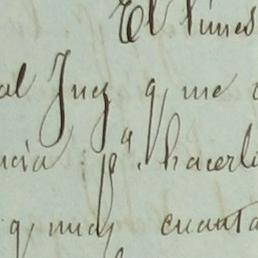 El lunes
al Juez q me
ncia pª. hacerl
q, mas cuanta